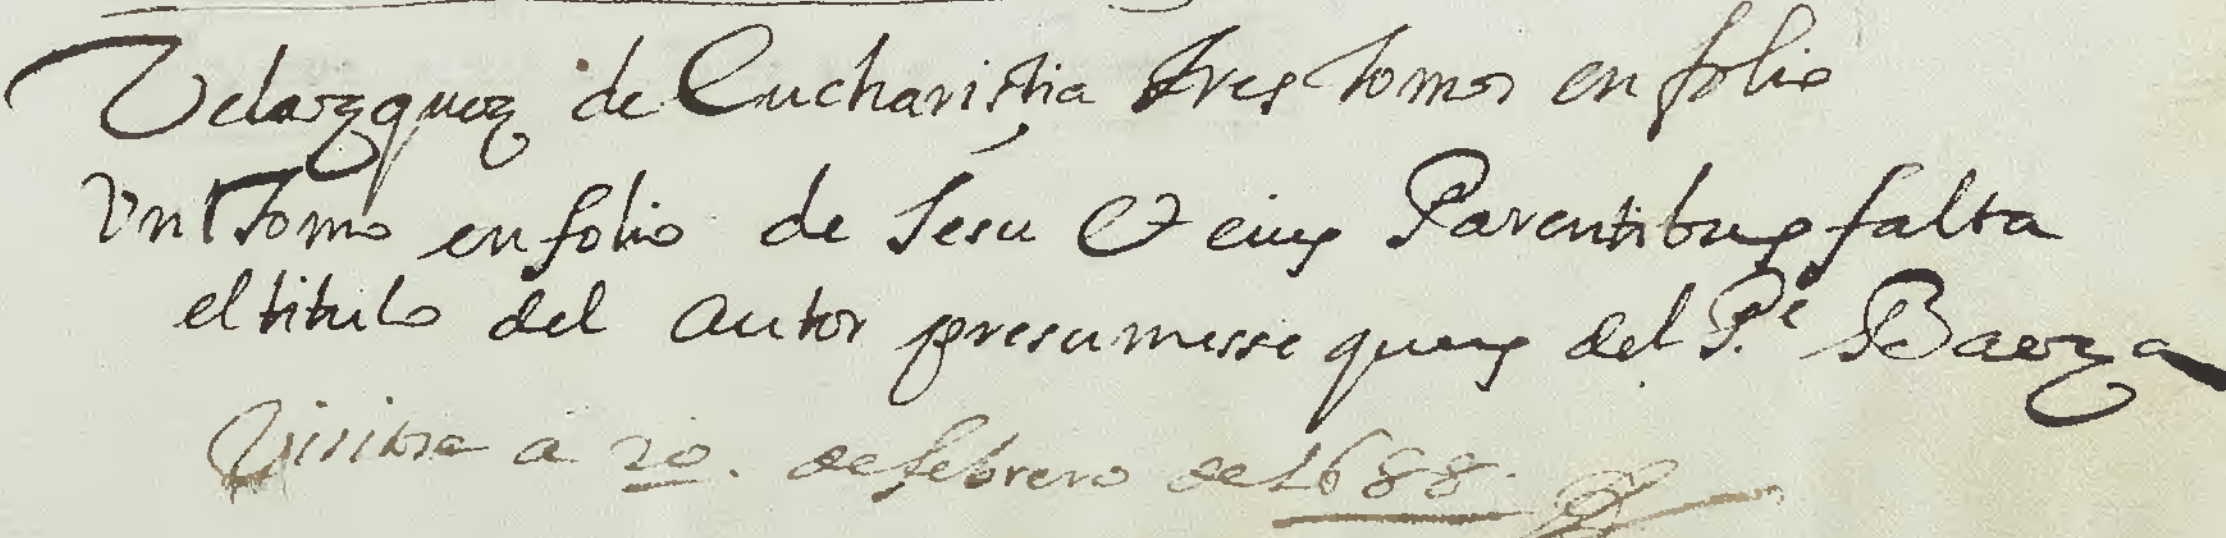 Velazquez de Eucharistia tres tomos en folio
Vn tomo en folio de Jesu & eius Parentibus falta
el titulo del autor presumesse ques del P.e Baeza
a 20. de febrero de 1688.